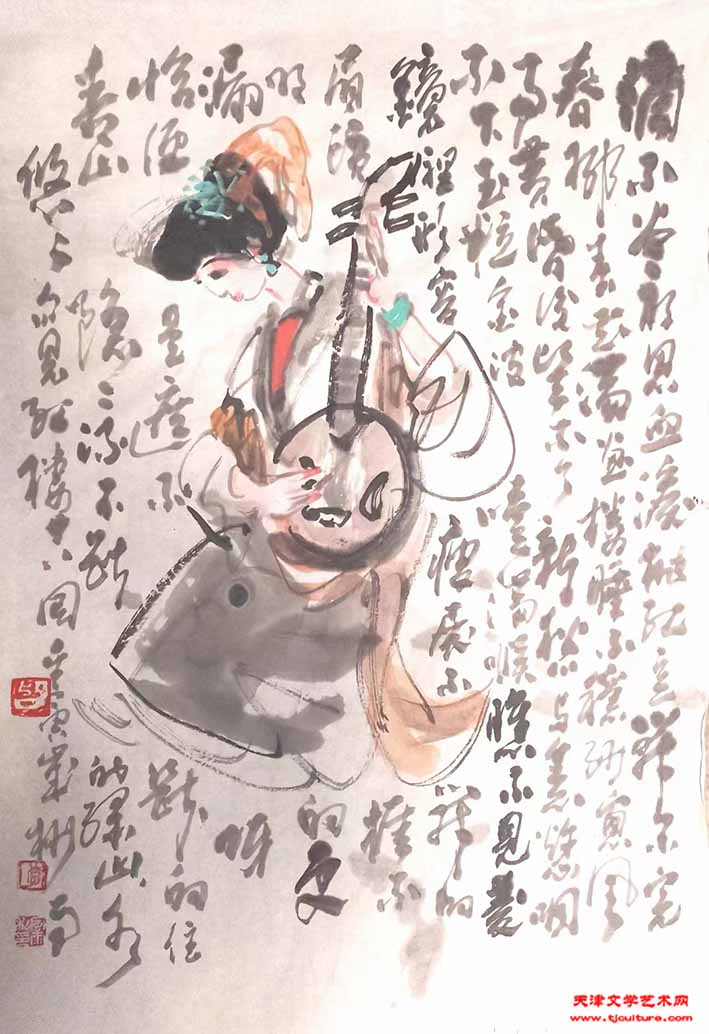 滴不尽相思血淚抛红豆开不完
春柳春花满画楼睡不穩纱窗風
雨黄昏後忘不了新愁与舊愁咽
不下玉粒金波噎满喉照不見菱
鏡裡形容瘦展不开的
眉頭捱不
明的更
漏呀
恰便是遮不的住
青山隐隐流不断的绿水
悠悠 見红樓回
天津文学艺术网
www.tjculture.com